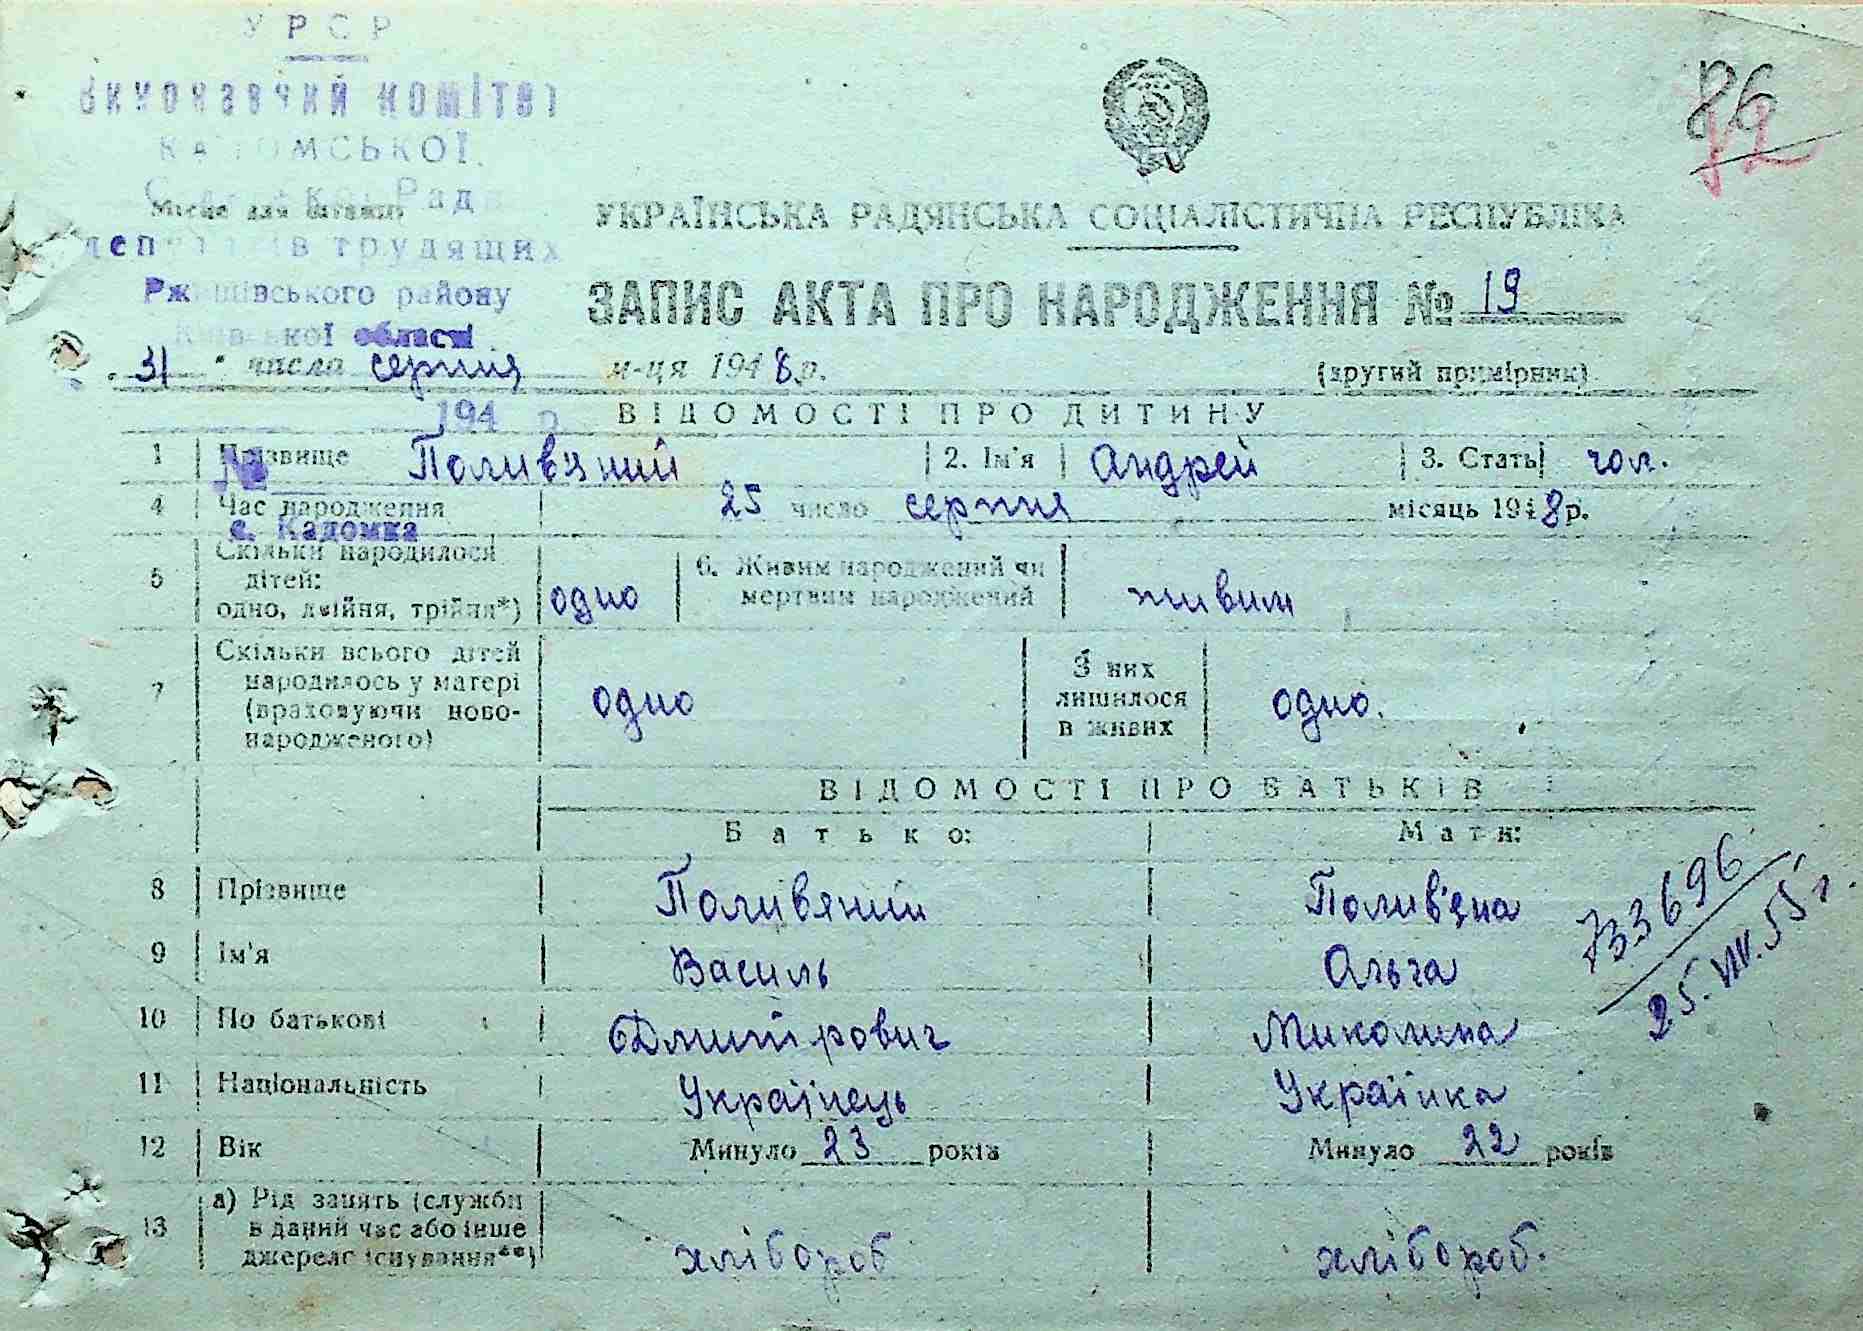 УРСР
Виконавчий комітет
КАДОМСЬКОЇ
Рад
Місце для штампу
депутатів трудящих
Ржищівського району
Київської області
194 р.
№
с. Кадомка
86
12
УКРАЇНСЬКА РАДЯНСЬКА СОЦІАЛІСТИЧНА РЕСПУБЛІКА
ЗАПИС АКТА ПРО НАРОДЖЕННЯ № 19
31 " числа серпня м-ця 1948 р.
(другий примірник)
ВІДОМОСТІ ПРО ДИТИНУ
1 Прізвище Полив'яний 2. Ім'я Андрей 3. Стать чол.
4 Час народження 25 число серпня місяць 1948 р.
5 Скільки народилося дітей: одно, двійня, трійня*) одно 6. Живим народжений чи мертвим народжений живим
7 Скільки всього дітей народилось у матері (враховуючи новонародженого) одно З них лишилося в живих одно.
ВІДОМОСТІ ПРО БАТЬКІВ
Батько: Мати:
8 Прізвище Поливяний Полив'яна
9 Ім'я Василь Ольга
10 По батькові Дмитрович Миколина
11 Національність Українець Українка
12 Вік Минуло 23 років Минуло 22 років
13 а) Рід занять (служби в даний час або інше джерело існування**) хлібороб хлібороб.
733696
25.VIII.55 г.